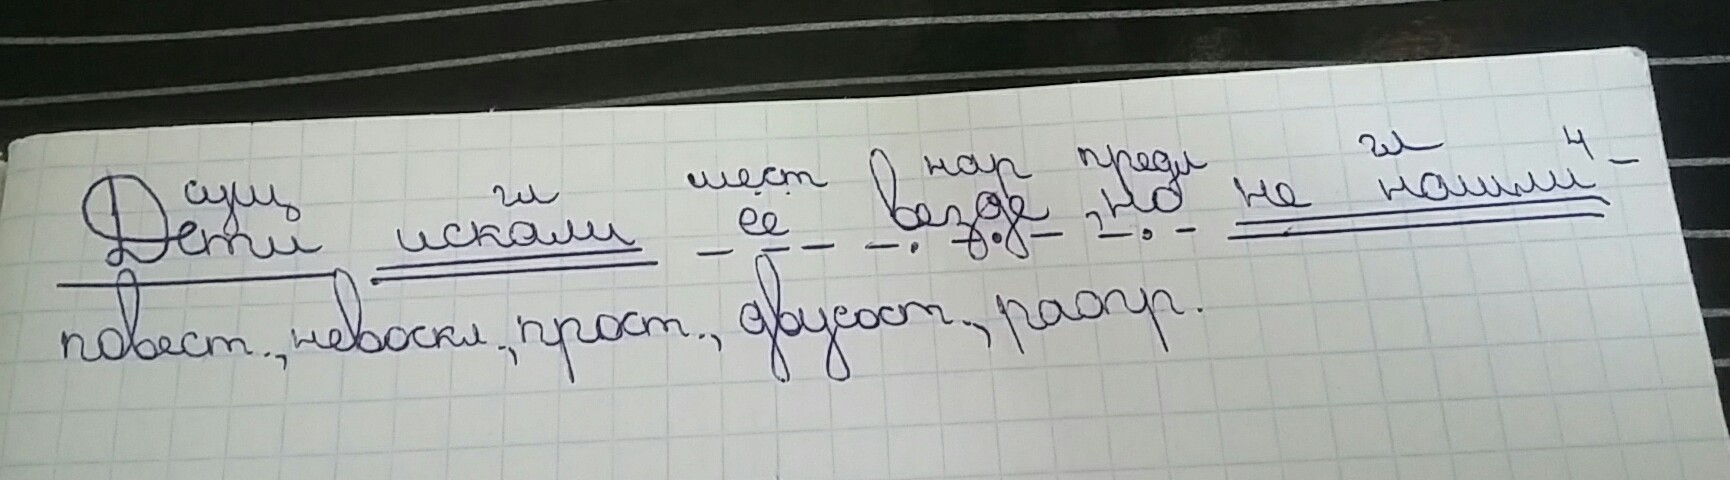 сущ гл мест нар предл гл ч
Дети искали ее везде, но не нашли
повест., невоскл., прост., двусост., распр.